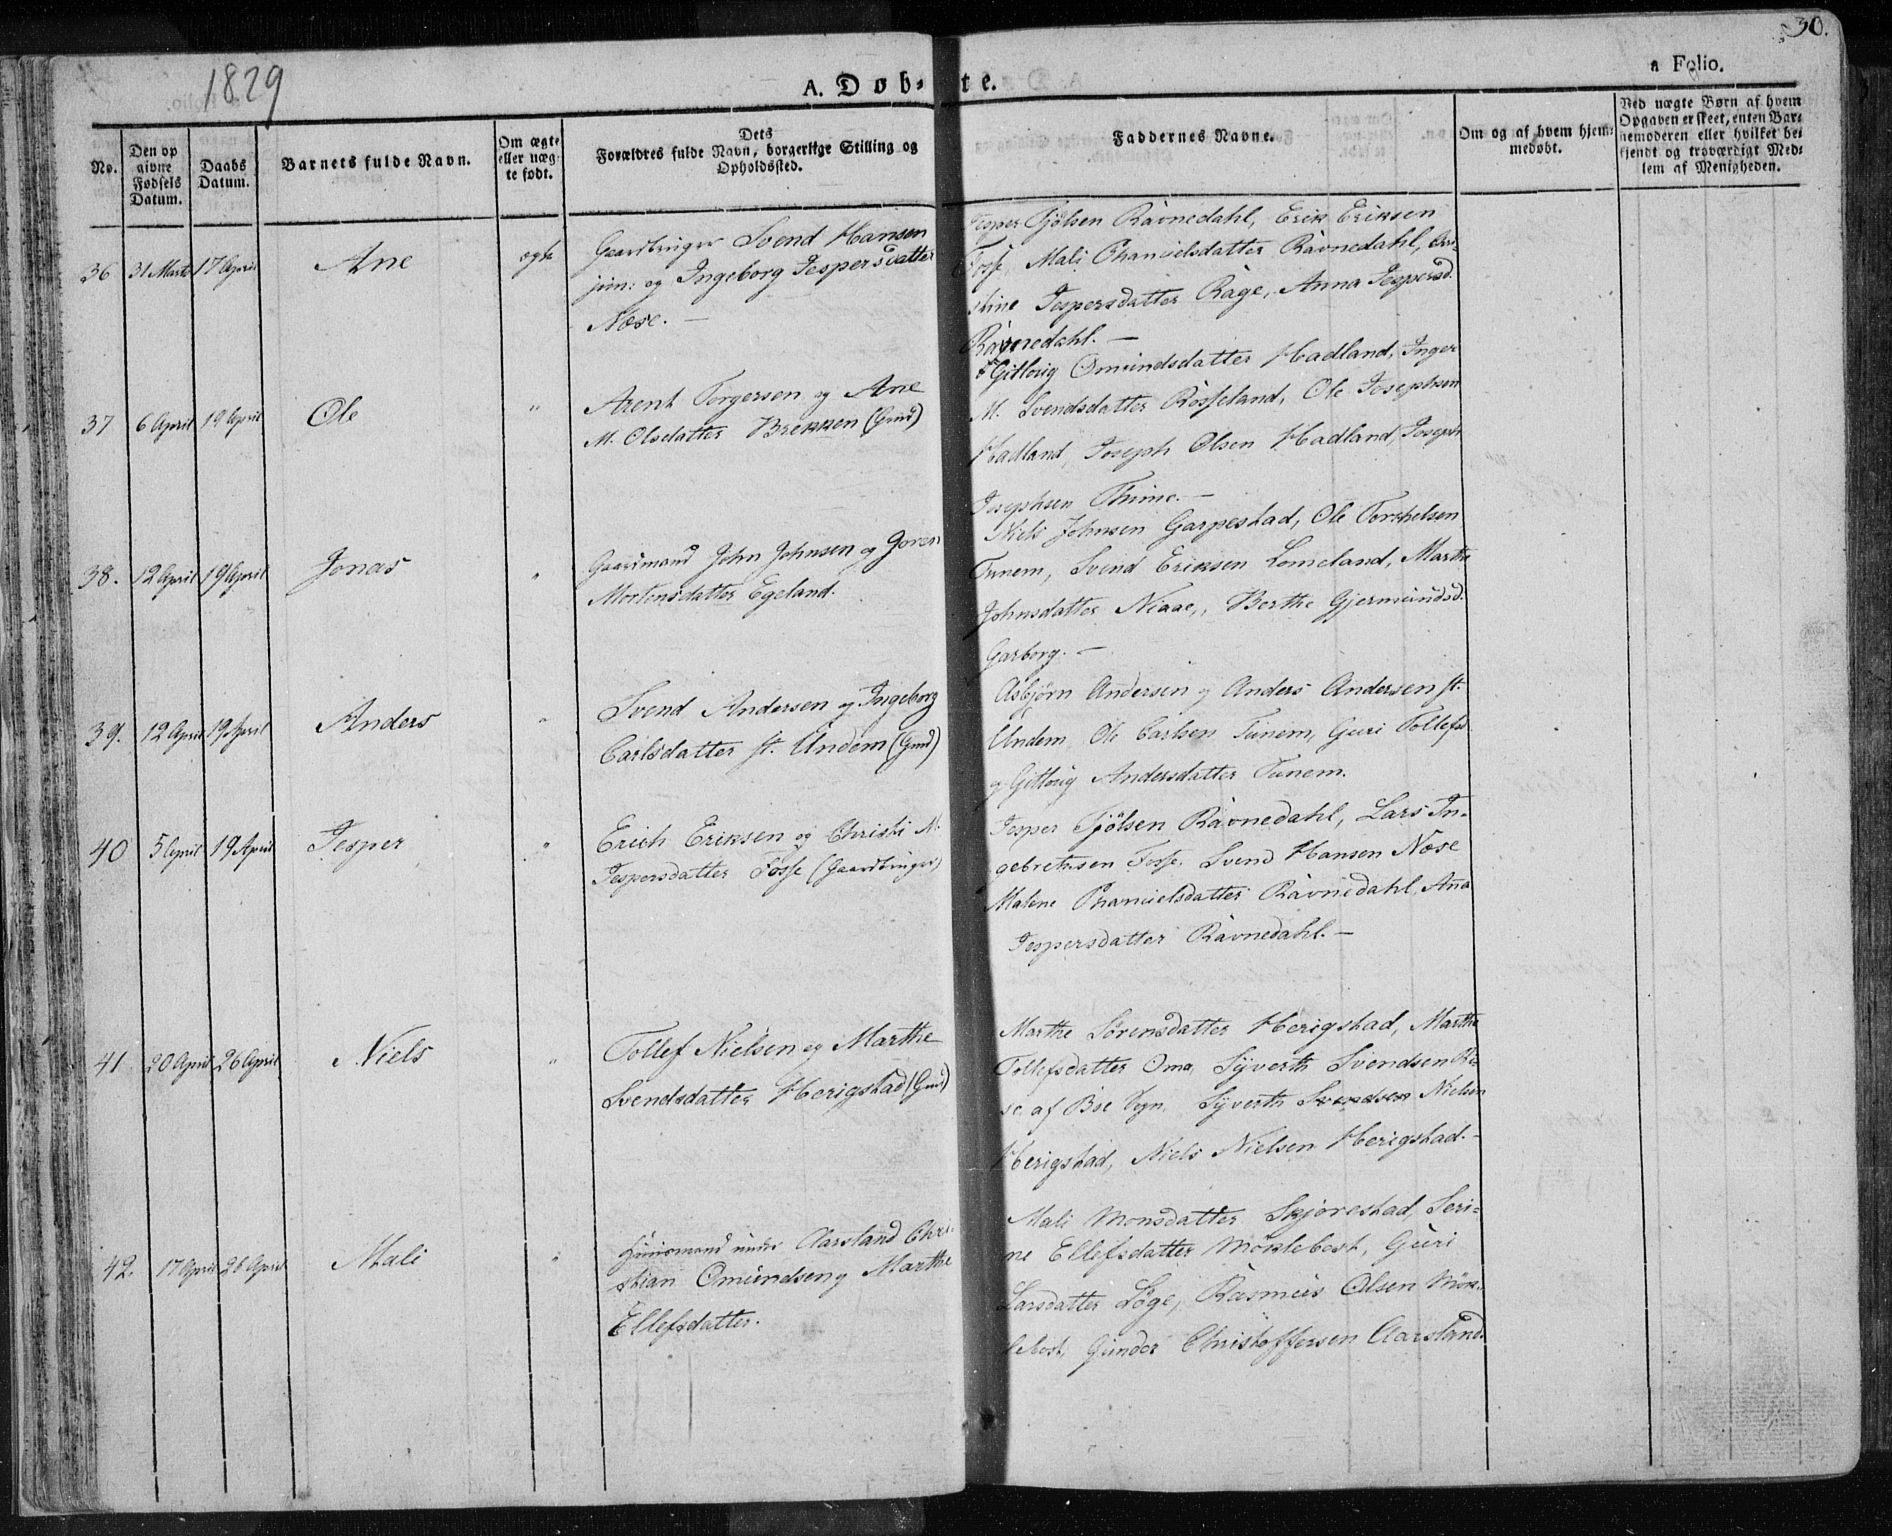 1829
A. Døb-
te.
30.
a Folio.
No.
Den opgivne Fødsels Datum.
Daabs Datum.
Barnets fulde Navn.
Om ægte eller uægte født.
Dets Forældres fulde Navn, borgerlige Stilling og Opholdssted.
Faddernes Navne.
Om og af hvem hjemmedøbt.
Ved uægte Børn af hvem Opgaven er skeet, enten Barnemoderen eller hvilket bekjendt og troværdigt Medlem af Menigheden.
36 31 Marts 17 April Ane ægte
Gaardbruger Svend Hansen
jun: og Ingeborg Jespersdatter
Næse. —
Jesper Tjølsen Ravnedahl, Erik Eriksen
Fosse, Mali Chanuelsdatter Ravnedahl,
Jespersdatter Rage, Anna Jespersd.
Ravnedahl. —
37 6 April 19 April Ole "
Arent Torgersen og Ane
M. Olsdatter Brekken (Gmd)
Gitlovig Omundsdatter Hadland, Inger
M. Svendsdatter Rosseland, Ole Josephsen
Hadland, Joseph Olsen Hadland, Joseph
Josephsen Thime. —
38. 12 April 19 April Jonas "
Gaardmand John Johnsen og Goren
Mortensdatter Egeland.
Niels Johnsen Garpestad, Ole Torkelsen
Tunem, Svend Eriksen Lomeland, Marthe
Johnsdatter Niaae, Berthe Gjermundsd.
Garborg. —
39. 12 April 19 April Anders "
Svend Andersen og Ingeborg
Carlsdatter st. Undem (Gmd)
Asbjørn Andersen og Anders Andersen st.
Undem, Ole Carlsen Tunem, Guri Tollefsd
og Gitlovig Andersdatter Tunem.
40 5 April 19 April Jesper "
Erich Eriksen og Christi M.
Jespersdatter Fosse (Gaardbruger)
Jesper Tjølsen Ravnedahl, Lars In-
gebretsen Fosse. Svend Hansen Næse
Malene Chanuelsdatter Ravnedahl, Ana
Jespersdatter Ravnedahl. —
41. 20 April 26 April Niels "
Tollef Nielsen og Marthe
Svendsdatter Herigstad (Gmd)
Marthe Sørensdatter Herigstad, Marthe
Tollefsdatter Oma, Syverth Svendsen
af Boe Sogn, Syverth Svendsen Nielsen
Herigstad, Niels Nielsen Herigstad. —
42. 17 April 26 April Mali "
Huusmand under Aarsland Chri-
stian Omundsen og Marthe
Ellefsdatter.
Mali Monsdatter Skjørestad, Seri-
ne Ellefsdatter Møklebost, Guri
Larsdatter Løge, Rasmus Olsen Møk-
lebost, Gunder Christoffersen Aarsland.